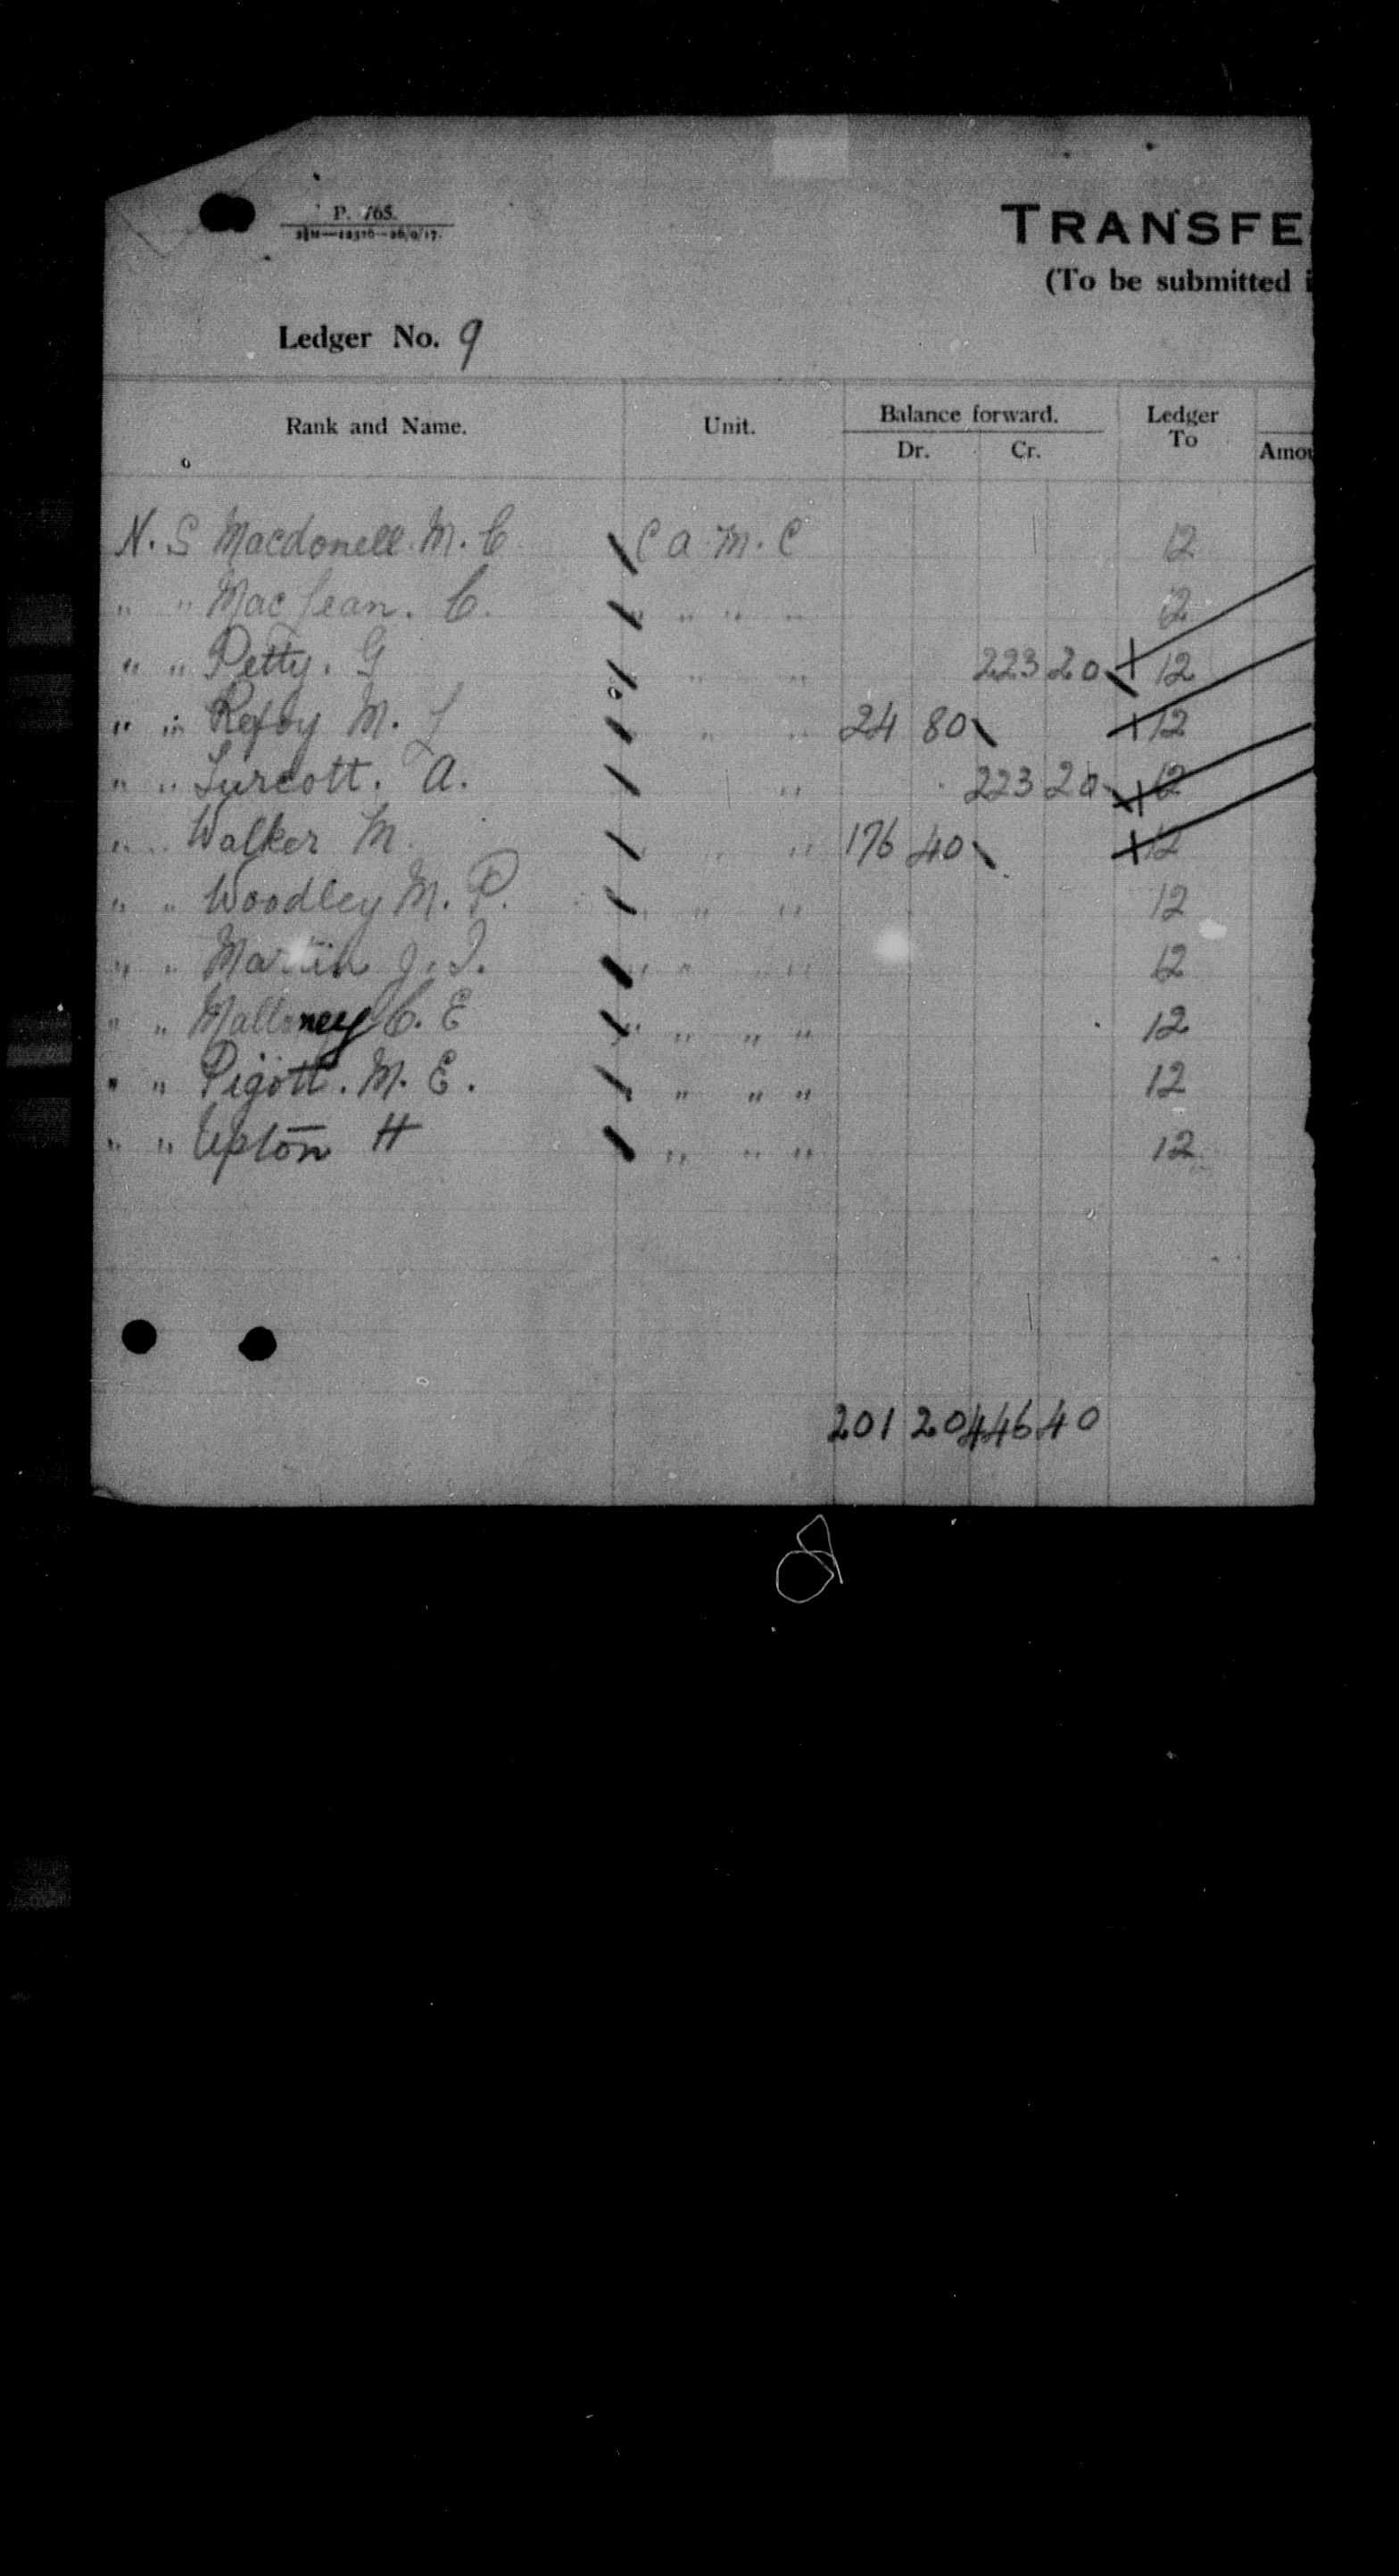 P. 765.
TRANSFE
(To be submitted i
Ledger No. 9
Rank and Name. Unit. Balance forward. Ledger To
Dr. Cr. Amou
N. S Macdonell. M. C C a. m. C 12
" " Mac Jean. C. " " " " 12
" " Petty. G " " 223 20 12
" " Refoy M. J " " 24 80 12
" " Turcott. A. " 223 20 12
" " Walker M. " " " 176 40 12
" " Woodley M. P. " " " 12
" " Martin J. I. " " " " 12
" " Malloney C. E " " " " 12
" " Pigott. M. E. " " " 12
" " Upton H " " " 12
201 20 446 40